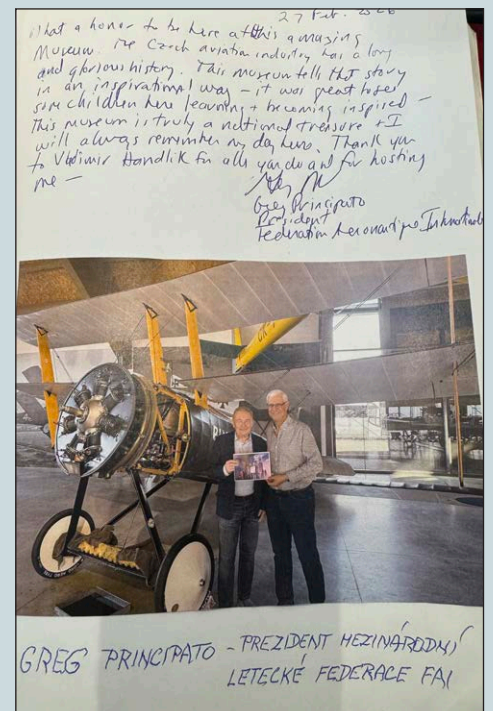 27 Feb. 2026
What a honor to be here at this amazing
Museum. The Czech aviation industry has a long
and glorious history. This museum tells that story
in an inspirational way – it was great to see
some children here learning + becoming inspired –
This museum is truly a national treasure + I
will always remember my day here. Thank you
to Vladimir Handlik for all you do and for hosting
me –
Greg Principato
President
Federation Aeronautique Internationale
GREG PRINCIPATO – PREZIDENT MEZINÁRODNÍ
LETECKÉ FEDERACE FAI